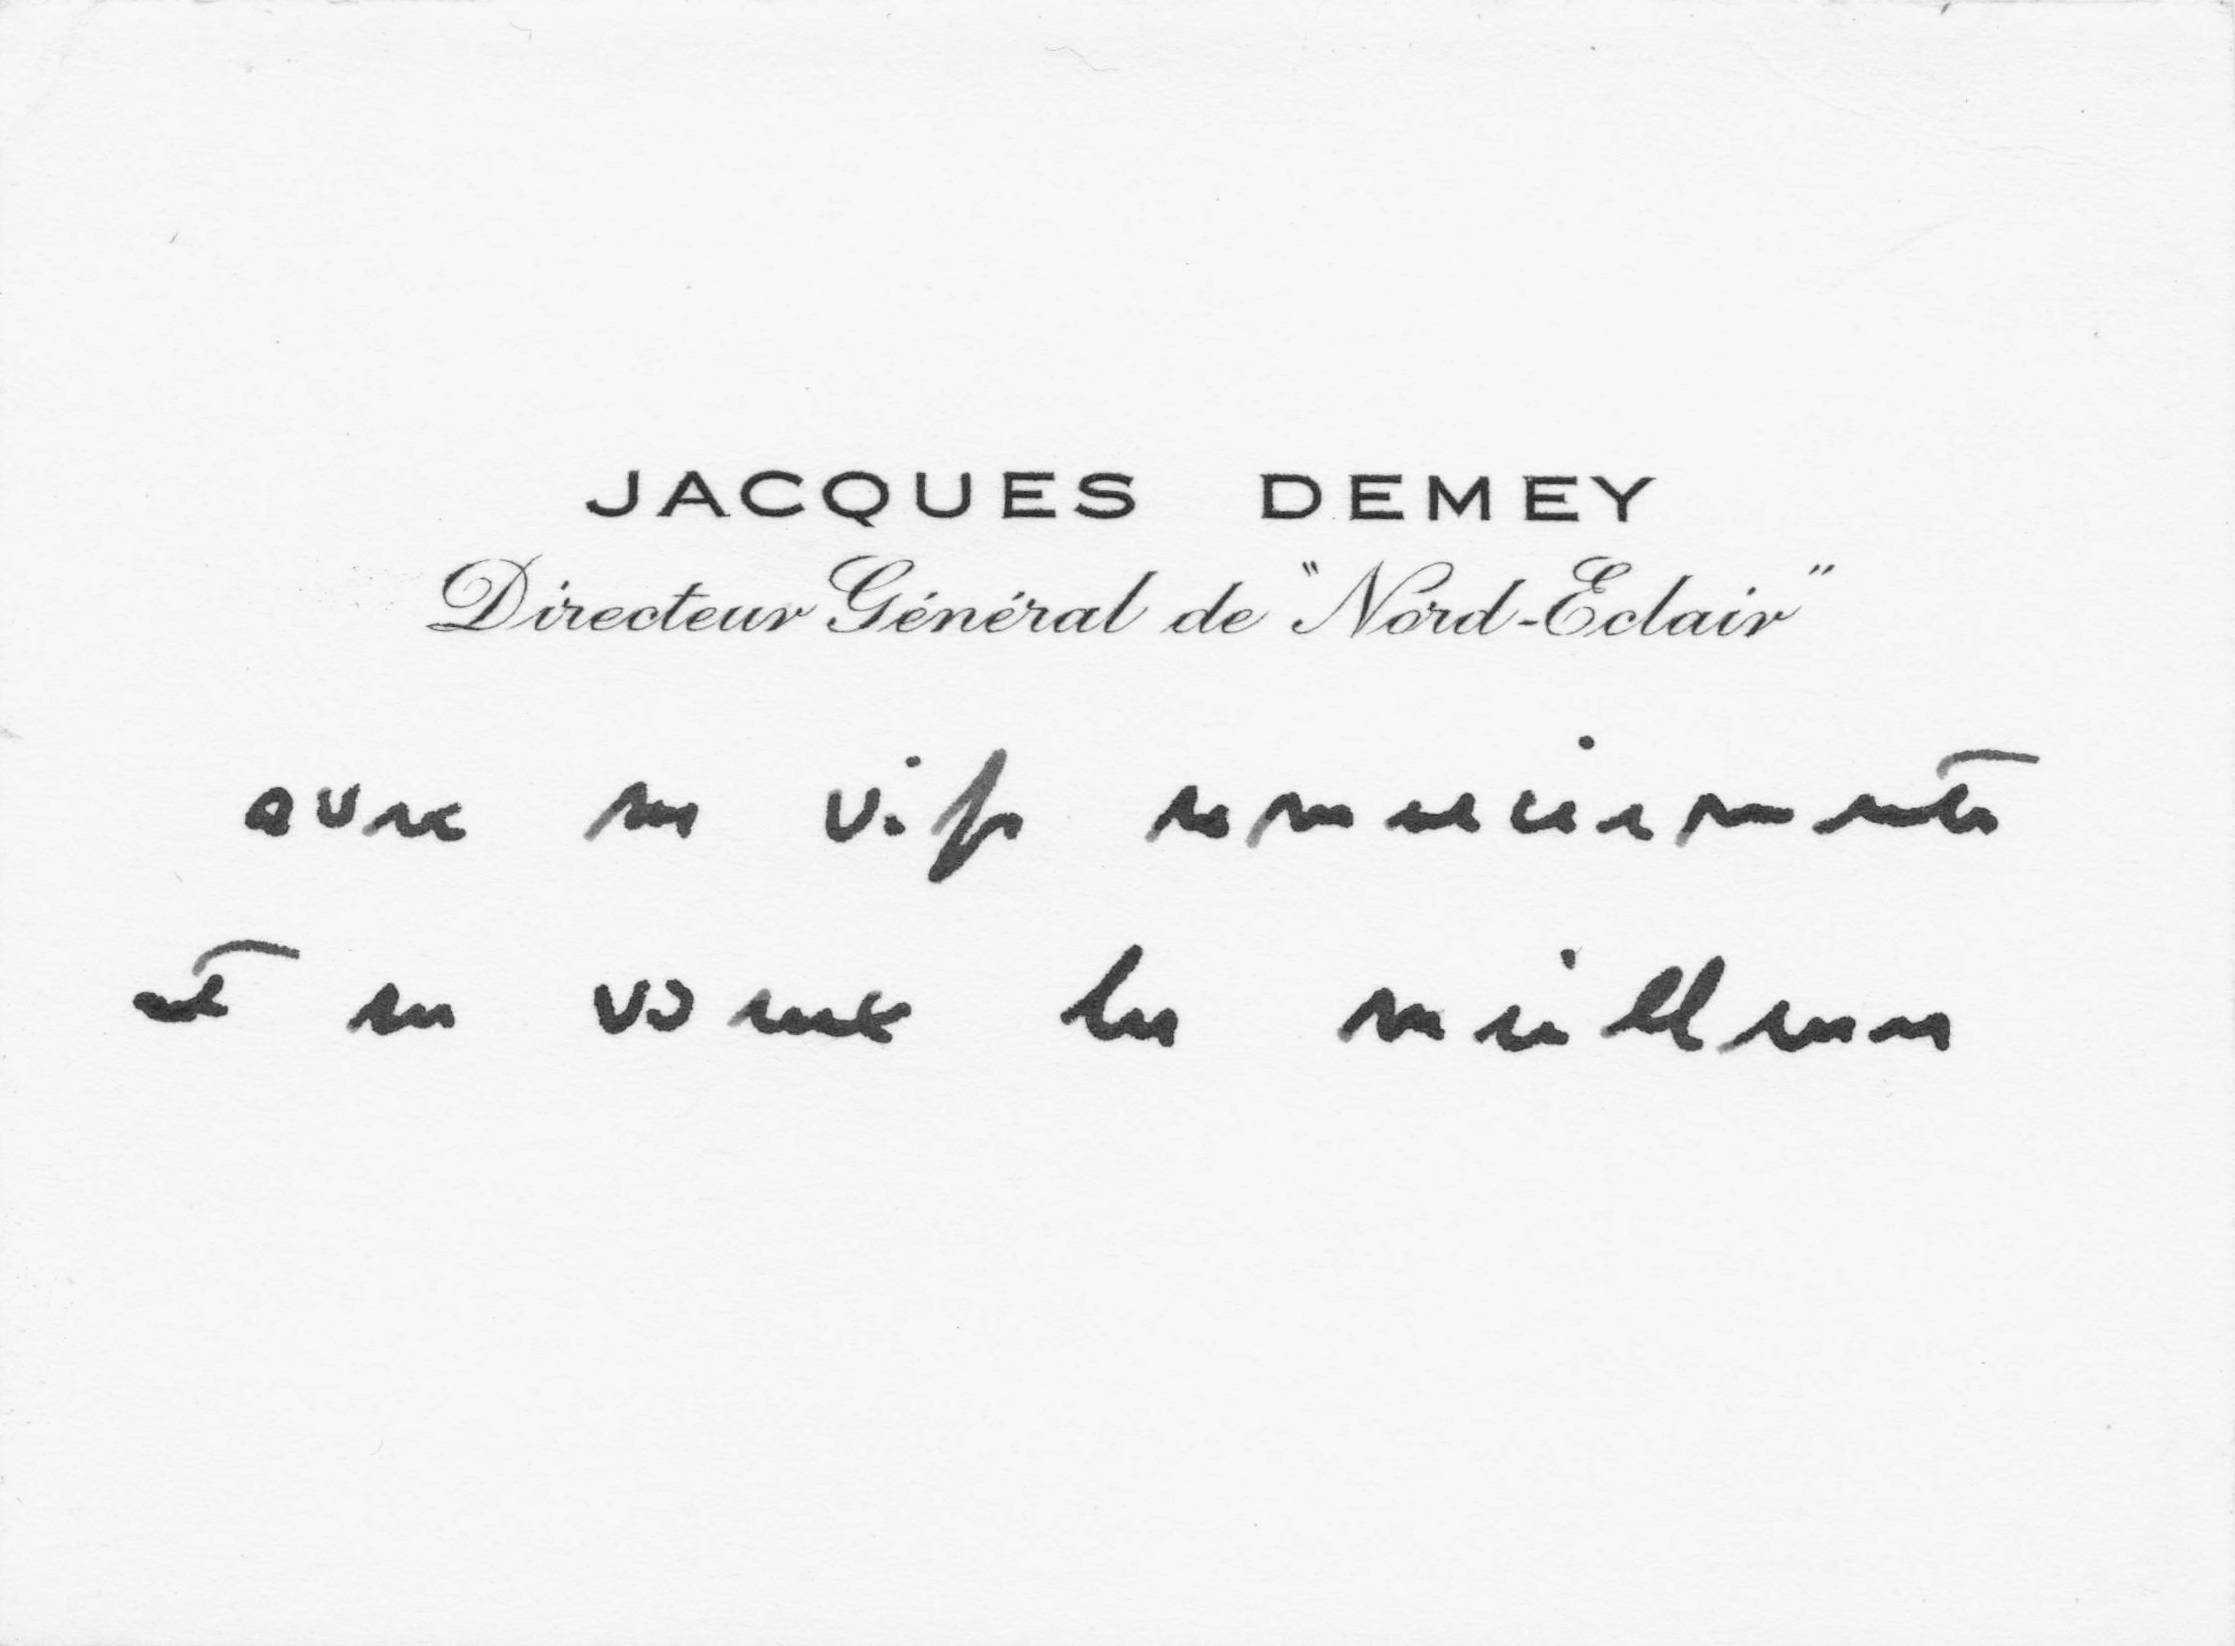 JACQUES DEMEY
Directeur Général de "Nord-Eclair"
avec ses vifs remerciements
et ses vœux les meilleurs